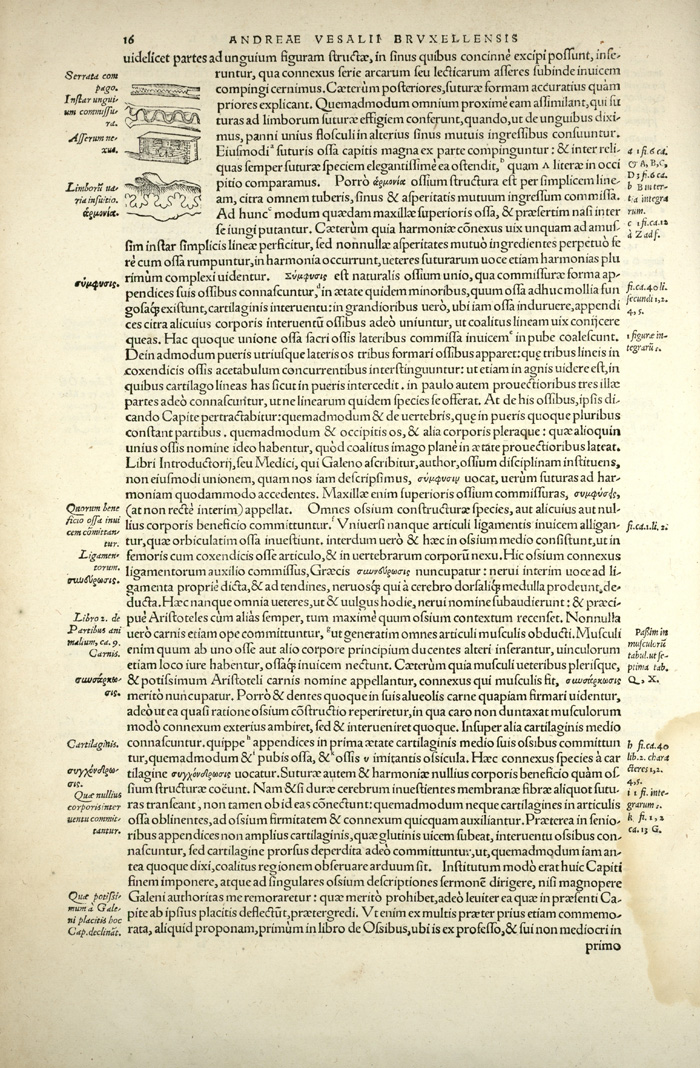 16 ANDREAE VESALII BRVXELLENSIS
uidelicet partes ad unguium figuram structæ, in sinus quibus concinnè excipi possunt, inse-
runtur, qua connexus serie arcarum seu lecticarum asseres subinde inuicem
compingi cernimus. Cæterùm posteriores, suturæ formam accuratius quàm
priores explicant. Quemadmodum omnium proximè eam assimilant, qui su
turas ad limborum suturæ effigiem conferunt, quando, ut de unguibus dixi-
mus, panni unius flosculi in alterius sinus mutuis ingressibus consuuntur.
Eiusmodi a suturis ossa capitis magna ex parte compinguntur: & inter reli-
quas semper suturæ speciem elegantissimè ea ostendit, b quam Λ literæ in occi
pitio comparamus. Porrò ἁρμονία ossium structura est per simplicem line-
am, citra omnem tuberis, sinus & asperitatis mutuum ingressum commissa.
Ad hunc c modum quædam maxillæ superioris ossa, & præsertim nasi inter
se iungi putantur. Cæterùm quia harmoniæ cōnexus uix unquam ad amus-
sim instar simplicis lineæ perficitur, sed nonnullæ asperitates mutuò ingredientes perpetuò fe
rè cum ossa rumpuntur, in harmonia occurrunt, ueteres suturarum uoce etiam harmonias plu
rimùm complexi uidentur. Σύμφυσις est naturalis ossium unio, qua commissuræ forma ap-
pendices suis ossibus connascuntur, d in ætate quidem minoribus, quum ossa adhuc mollia fun
gosaq́; existunt, cartilaginis interuentu: in grandioribus uerò, ubi iam ossa induruere, appendi
ces citra alicuius corporis interuentū ossibus adeò uniuntur, ut coalitus lineam uix conijcere
queas. Hac quoque unione ossa sacri ossis lateribus commissa inuicem e in pube coalescunt.
Dein admodum pueris utriusque lateris os tribus formari ossibus apparet: quę tribus lineis in
coxendicis ossis acetabulum concurrentibus interstinguuntur: ut etiam in agnis uidere est, in
quibus cartilago lineas has sicut in pueris intercedit. in paulo autem prouectioribus tres illæ
partes adeò connascuntur, ut ne linearum quidem species se offerat. At de his ossibus, ipsis di-
cando Capite pertractabitur: quemadmodum & de uertebris, quę in pueris quoque pluribus
constant partibus. quemadmodum & occipitis os, & alia corporis pleraque: quæ alioquin
unius ossis nomine ideo habentur, quòd coalitus imago planè in ætate prouectioribus lateat.
Libri Introductorij, seu Medici, qui Galeno ascribitur, author, ossium disciplinam instituens,
non eiusmodi unionem, quam nos iam descripsimus, σύμφυσιν uocat, uerùm suturas ad har-
moniam quodammodo accedentes. Maxillæ enim superioris ossium commissuras, συμφύσεις,
(at non rectè interim) appellat. Omnes ossium constructæ species, aut alicuius aut nul-
lius corporis beneficio committuntur. f Vniuersi nanque articuli ligamentis inuicem alligan-
tur, quæ orbiculatim ossa inuestiunt. interdum uerò & hæc in ossium medio consistunt, ut in
femoris cum coxendicis osse articulo, & in uertebrarum corporū nexu. Hic ossium connexus
ligamentorum auxilio commissus, Græcis συννεύρωσις nuncupatur: nerui interim uoce ad li-
gamenta propriè dicta, & ad tendines, neruosq́; qui à cerebro dorsaliq́; medulla prodeunt, de-
ducta. Hæc nanque omnia ueteres, ut & uulgus hodie, nerui nomine subaudierunt: & præci-
puè Aristoteles cùm aliàs semper, tum maximè quum ossium contextum recenset. Nonnulla
uerò carnis etiam ope committuntur, g ut generatim omnes articuli musculis obducti. Musculi
enim quum ab uno osse aut alio corpore principium ducentes alteri inserantur, uinculorum
etiam loco iure habentur, ossaq́; inuicem nectunt. Cæterùm quia musculi ueteribus plerisque,
& potissimum Aristoteli carnis nomine appellantur, connexus qui musculis fit, συσσάρκωσις
meritò nuncupatur. Porrò & dentes quoque in suis alueolis carne quapiam firmari uidentur,
adeò ut ea quasi ratione ossium cōstructio reperiretur, in qua caro non duntaxat musculorum
modò connexum exterius ambiret, sed & interueniret quoque. Insuper alia cartilaginis medio
connascuntur. quippe h appendices in prima ætate cartilaginis medio suis ossibus committun
tur, quemadmodum & i pubis ossa, & k ossis υ imitantis ossicula. Hæc connexus species à car
tilagine συγχόνδρωσις uocatur. Suturæ autem & harmoniæ nullius corporis beneficio quàm os-
sium structuræ coëunt. Nam & si duræ cerebrum inuestientes membranæ fibræ aliquot sutu-
ras transeant, non tamen ob id eas cōnectunt: quemadmodum neque cartilagines in articulis
ossa oblinentes, ad ossium firmitatem & connexum quicquam auxiliantur. Præterea in senio-
ribus appendices non amplius cartilaginis, quæ glutinis uicem subeat, interuentu ossibus con-
nascuntur, sed cartilagine prorsus deperdita adeò committuntur, ut, quemadmodum iam an-
tea quoque dixi, coalitus regionem obseruare arduum sit. Institutum modò erat huic Capiti
finem imponere, atque ad singulares ossium descriptiones sermonē dirigere, nisi magnopere
Galeni authoritas me remoraretur: quæ meritò prohibet, adeò leuiter ea quæ in præsenti Ca-
pite ab ipsius placitis deflectūt, prætergredi. Vt enim ex multis præter prius etiam commemo-
rata, aliquid proponam, primùm in libro de Ossibus, ubi is ex professo, & sui non mediocri in
primo
Serrata com
pago.
Instar ungui-
um commissu-
ra.
Asserum ne-
xus.
Limborū ua-
ria insutio.
ἁρμονία.
σύμφυσις.
Quorum bene
ficio ossa inui
cem cōmittan-
tur.
Ligamen-
torum.
συννεύρωσις.
Libro 2. de
Partibus ani
malium, ca. 9.
Carnis.
συσσάρκω-
σις.
Cartilaginis.
συγχόνδρω-
σις.
Quæ nullius
corporis inter
uentu commit-
tantur.
Quæ potissi-
mum à Gale-
ni placitis hoc
Cap. declināt.
a 1 fi. 6 ca.
& A, B, C,
D 3 fi. 6 ca.
b B inter-
tia integra
rum.
c 1 fi. ca. 12
à Z ad f.
fi. ca. 40 li.
secundi 1, 2.
4, 5.
1 figuræ in-
tegrarū 1.
fi. ca. 1. li. 2.
Passim in
musculorū
tabul. ut se-
prima tab.
Q, X.
h fi. ca. 40
lib. 2. chara
cteres 1, 2.
4, 5.
i 1 fi. inte-
grarum 1.
k fi. 1, 2
ca. 13 G.